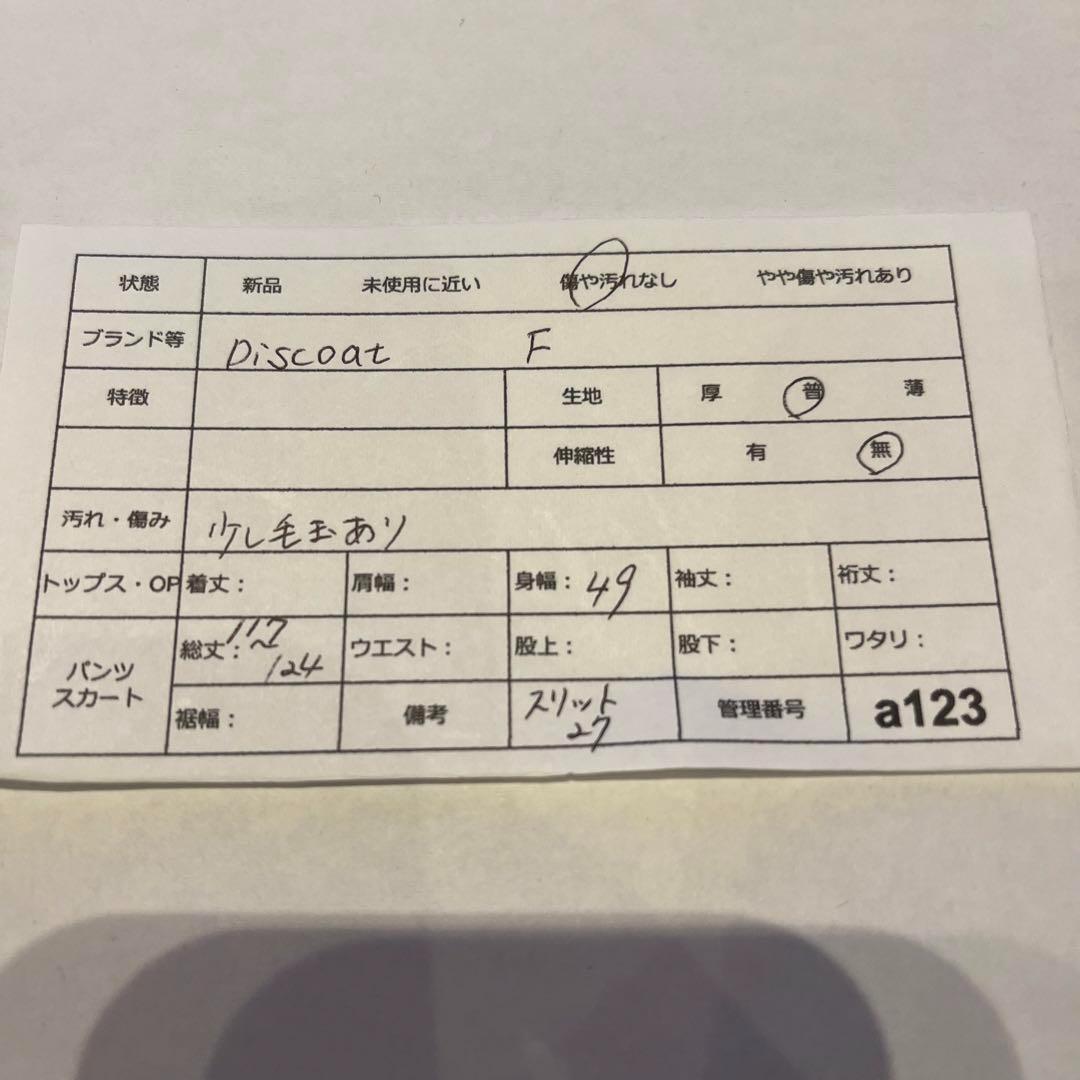 状態 新品 未使用に近い 傷や汚れなし やや傷や汚れあり
ブランド等 Discoat F
特徴 生地 厚 普 薄
伸縮性 有 無
汚れ・傷み 少し毛玉あり
トップス・OP 着丈： 肩幅： 身幅：49 袖丈： 裄丈：
パンツ
スカート
総丈：117～124 ウエスト： 股上： 股下： ワタリ：
裾幅： 備考 スリット
27
管理番号 a123